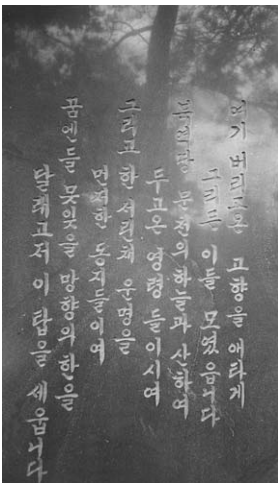 여기 버리고온 고향을 애타게
그리든 이들 모였읍니다
북녘땅 문전의하늘과 산하여
두고온 영령 들이시여
그리고 한 서린채 운명을
먼저한 동지들이여
꿈엔들 못잊을 망향의한을
달래고저 이 탑을 세웁니다